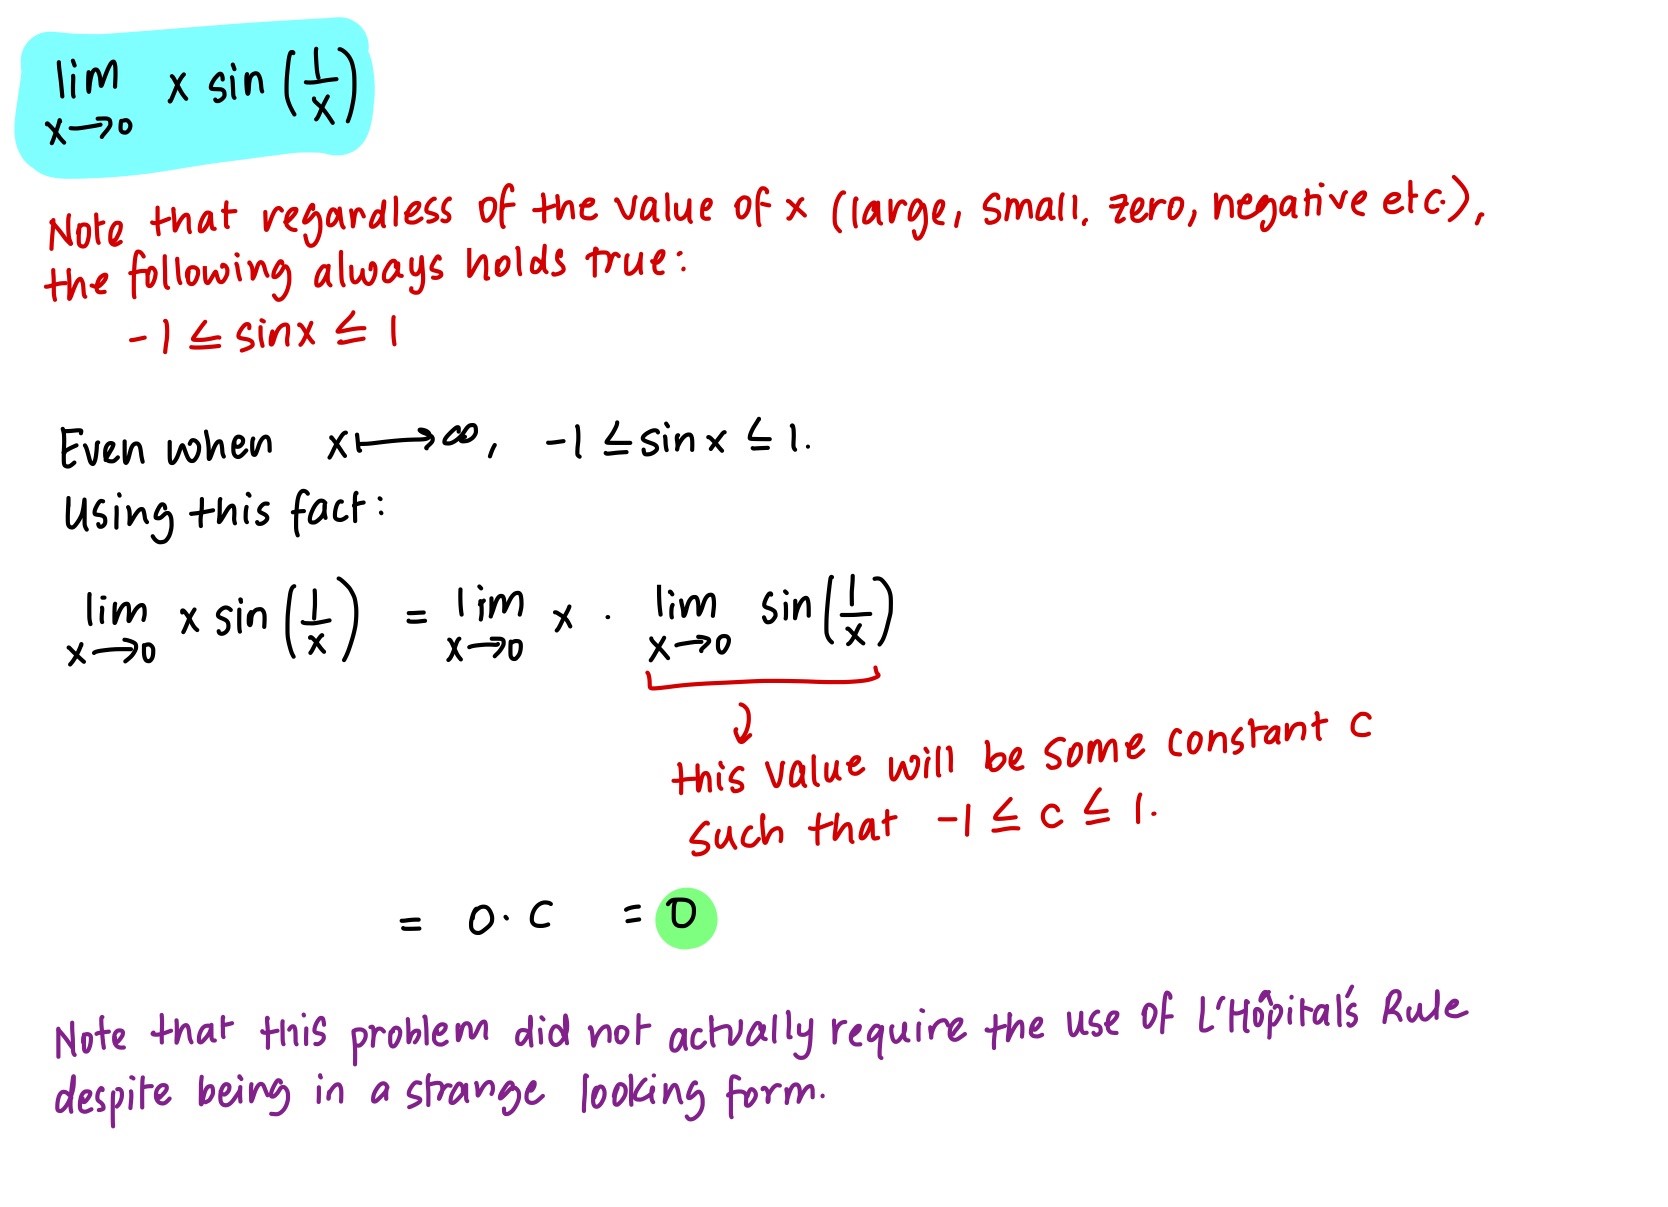 lim x→0 x sin (1/x)
Note that regardless of the value of x (large, small, zero, negative etc.),
the following always holds true:
-1 ≤ sinx ≤ 1
Even when x⟼∞, -1 ≤ sin x ≤ 1.
Using this fact:
lim x→0 x sin (1/x) = lim x→0 x · lim x→0 sin (1/x)
this value will be some constant c
such that -1 ≤ c ≤ 1.
= 0 · c = 0
Note that this problem did not actually require the use of L'Hôpital's Rule
despite being in a strange looking form.